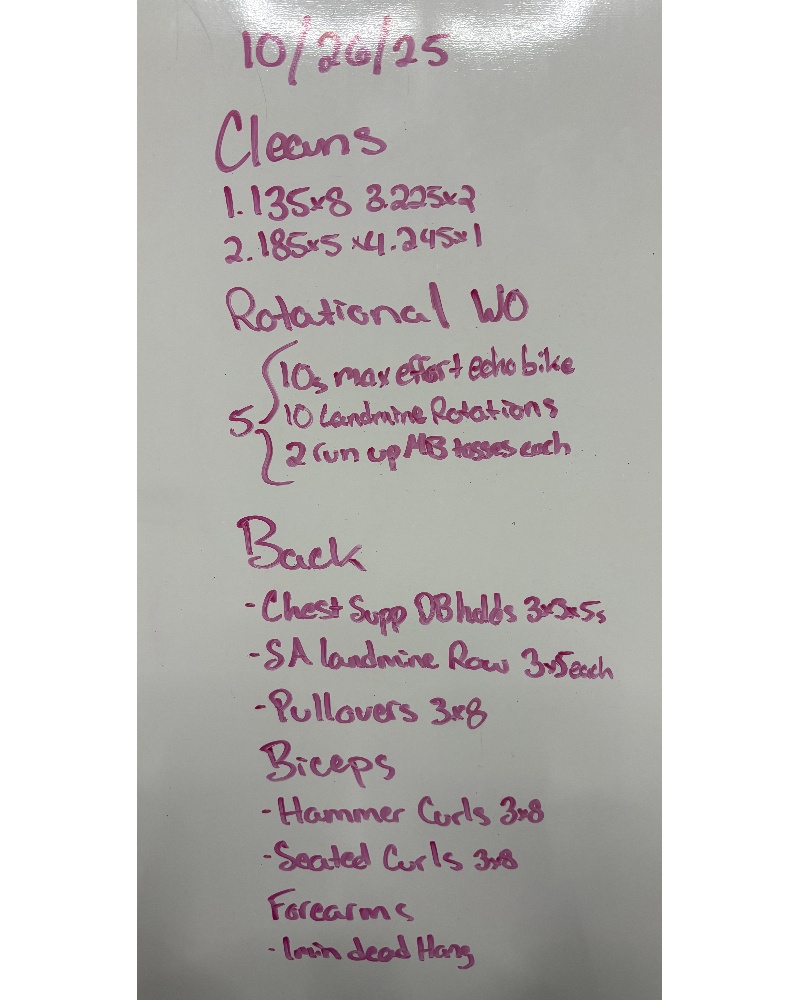 10/26/25
Cleans
1. 135x8 3. 225x2
2. 185x5 x4. 245x1
Rotational WO
10s max effort echo bike
5 10 Landmine Rotations
2 run up MB tosses each
Back
- Chest Supp DB holds 3x5x5s
- SA landmine Row 3x5 each
- Pullovers 3x8
Biceps
- Hammer Curls 3x8
- Seated Curls 3x8
Forearms
- 1min dead Hang